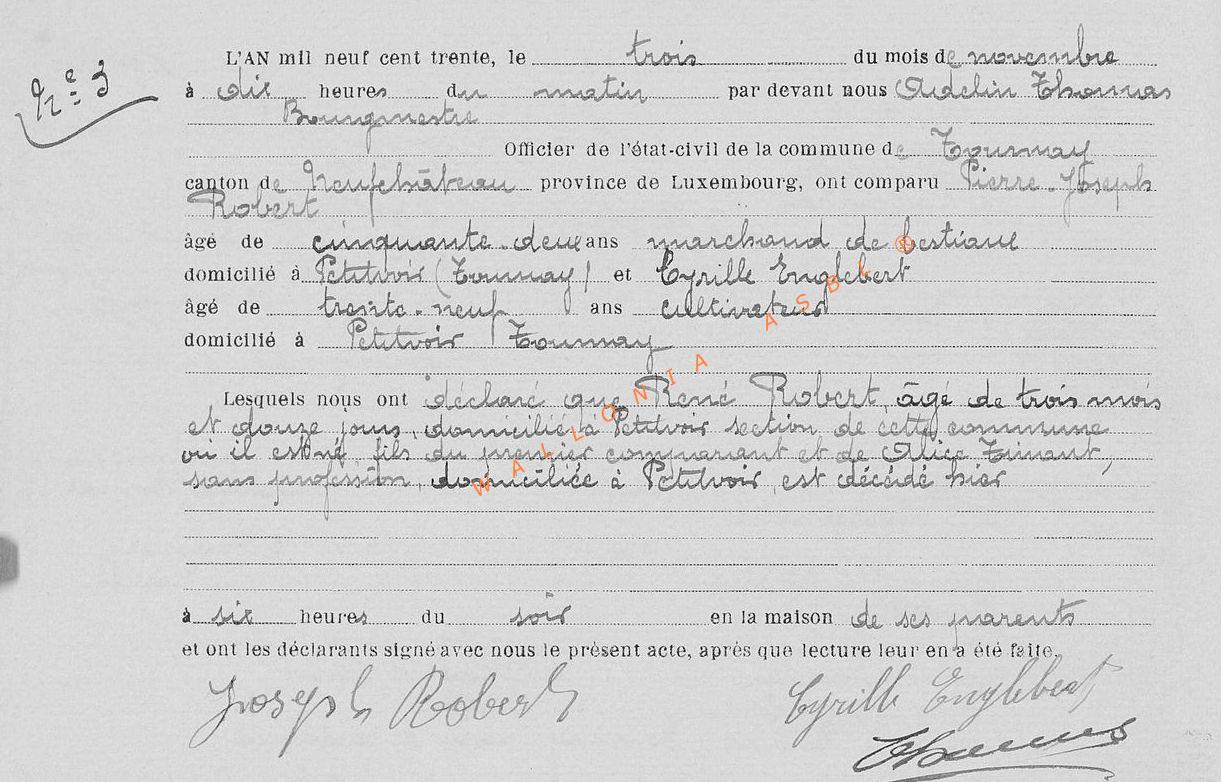 L'AN mil neuf cent trente, le trois du mois de novembre
Nº 3
à dix heures du matin par devant nous Adelin Thomas
Bourgmestre
Officier de l'état-civil de la commune de Tournay
canton de Neufchâteau province de Luxembourg, ont comparu Pierre-Joseph
Robert
âgé de cinquante-deux ans marchand de bestiaux
domicilié à Petitvoir (Tournay) et Cyrille Englebert
âgé de trente-neuf ans cultivateur
domicilié à Petitvoir Tournay
Lesquels nous ont déclaré que René Robert, âgé de trois mois
et douze jours, domicilié à Petitvoir section de cette commune
où il est né, fils du premier comparant et de Alice Tinant,
sans profession, domiciliée à Petitvoir, est décédé hier
à six heures du soir en la maison de ses parents
et ont les déclarants signé avec nous le présent acte, après que lecture leur en a été faite.
Joseph Robert Cyrille Englebert
Thomas
WALLONIA ASBL ®